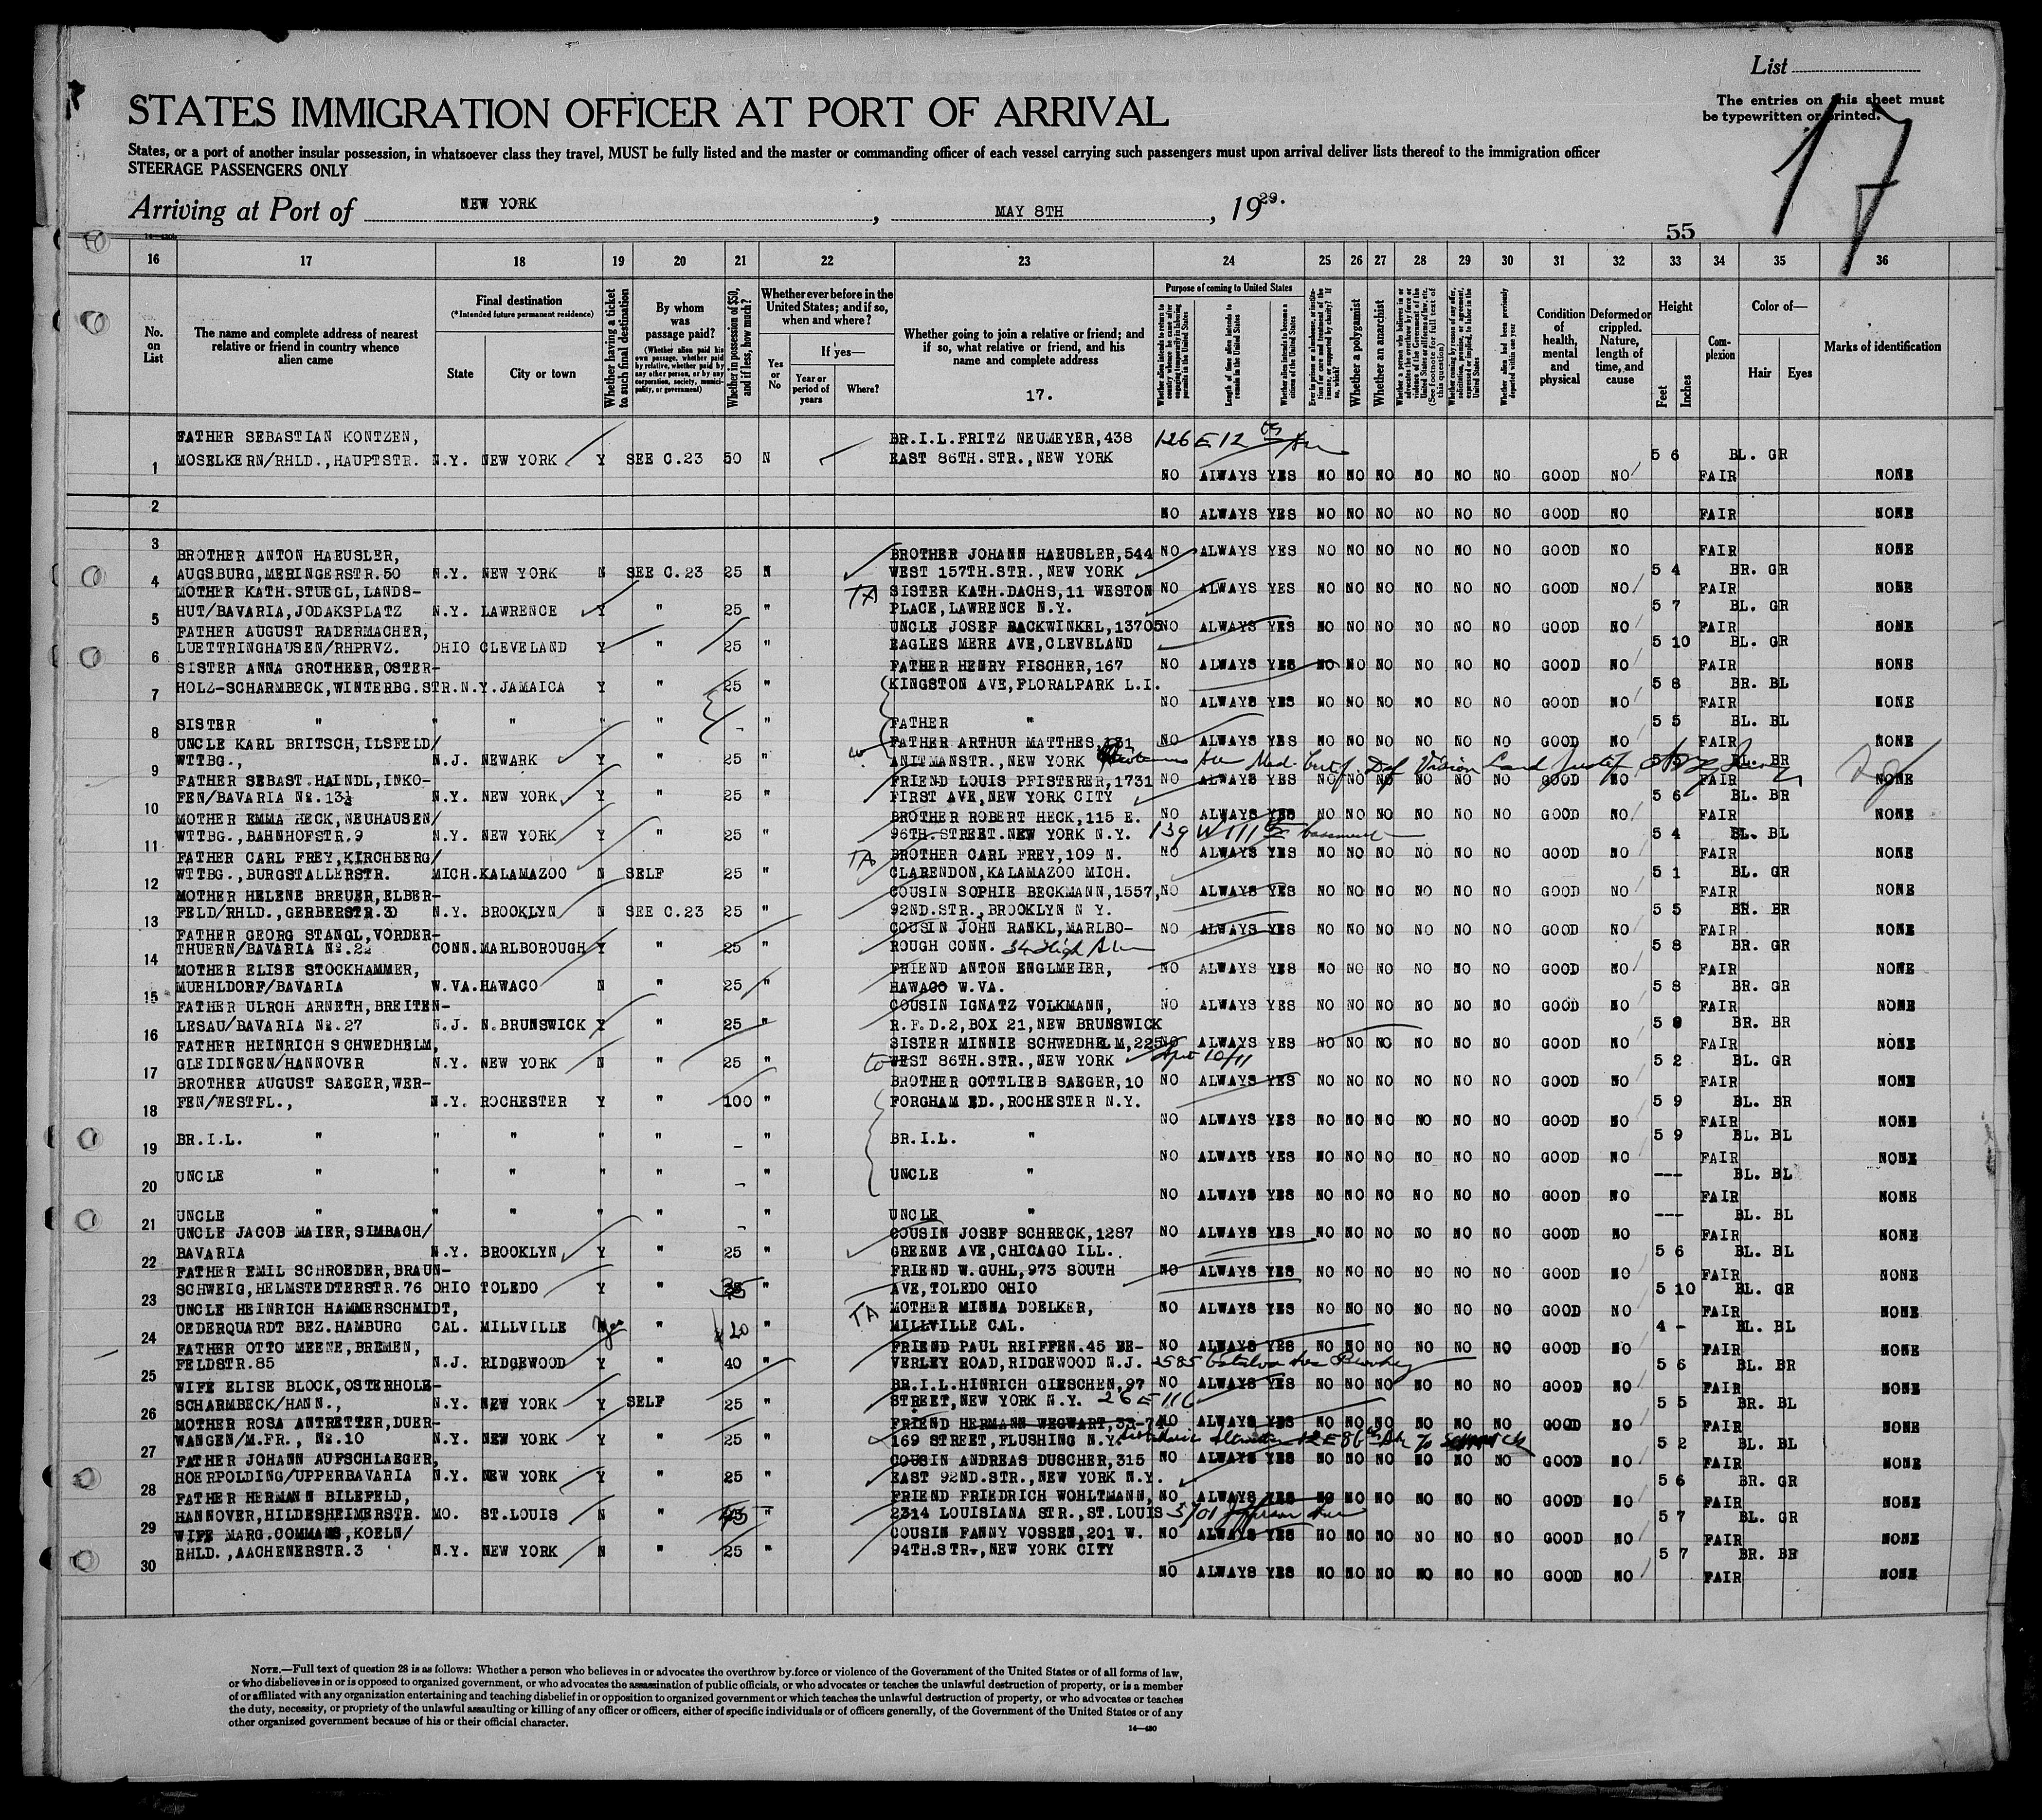 List
The entries on this sheet must
be typewritten or printed.
17
STATES IMMIGRATION OFFICER AT PORT OF ARRIVAL
States, or a port of another insular possession, in whatsoever class they travel, MUST be fully listed and the master or commanding officer of each vessel carrying such passengers must upon arrival deliver lists thereof to the immigration officer
STEERAGE PASSENGERS ONLY
Arriving at Port of NEW YORK, MAY 8TH, 1929.
55
16 17 18 19 20 21 22 23 24 25 26 27 28 29 30 31 32 33 34 35 36
No. on List
The name and complete address of nearest relative or friend in country whence alien came
Final destination
(*Intended future permanent residence)
State
City or town
Whether having a ticket to such final destination
By whom was passage paid?
(Whether alien paid his own passage, whether paid by relative, whether paid by any other person, or by any corporation, society, municipality, or government)
Whether in possession of $50, and if less, how much?
Whether ever before in the United States; and if so, when and where?
Yes or No
If yes—
Year or period of years
Where?
Whether going to join a relative or friend; and if so, what relative or friend, and his name and complete address
17.
Purpose of coming to United States
Whether alien intends to return to country whence he came after engaging temporarily in laboring pursuits in the United States
Length of time alien intends to remain in the United States
Whether alien intends to become a citizen of the United States
Whether a polygamist
Whether an anarchist
Condition of health, mental and physical
Deformed or crippled. Nature, length of time, and cause
Height
Feet
Inches
Complexion
Color of—
Hair
Eyes
Marks of identification
FATHER SEBASTIAN KONTZEN, BR.I.L.FRITZ NEUMEYER,438 126 E 12
1 MOSELKERN/RHLD.,HAUPTSTR. N.Y. NEW YORK Y SEE C.23 50 N EAST 86TH.STR.,NEW YORK 5 6 BL. GR
NO ALWAYS YES NO NO NO NO NO NO GOOD NO FAIR NONE
2 NO ALWAYS YES NO NO NO NO NO NO GOOD NO FAIR NONE
3 NO ALWAYS YES NO NO NO NO NO NO GOOD NO FAIR NONE
BROTHER ANTON HAEUSLER, BROTHER JOHANN HAEUSLER,544
4 AUGSBURG,MERINGERSTR.50 N.Y. NEW YORK N SEE C.23 25 N WEST 157TH.STR.,NEW YORK 5 4 BR. GR
NO ALWAYS YES NO NO NO NO NO NO GOOD NO FAIR NONE
MOTHER KATH.STUEGL,LANDS- TA SISTER KATH.DACHS,11 WESTON
5 HUT/BAVARIA,JODAKSPLATZ N.Y. LAWRENCE Y " 25 " PLACE,LAWRENCE N.Y. 5 7 BL. GR
NO ALWAYS YES NO NO NO NO NO NO GOOD NO FAIR NONE
FATHER AUGUST RADERMACHER, UNCLE JOSEF BACKWINKEL,13705
6 LUETTRINGHAUSEN/RHPRVZ. OHIO CLEVELAND Y " 25 " EAGLES MERE AVE,CLEVELAND 5 10 BL. GR
NO ALWAYS YES NO NO NO NO NO NO GOOD NO FAIR NONE
SISTER ANNA GROTHEER,OSTER- FATHER HENRY FISCHER,167
7 HOLZ-SCHARMBECK,WINTERBG.STR.N.Y.JAMAICA Y " 25 " KINGSTON AVE,FLORALPARK L.I. 5 8 BR. BL
NO ALWAYS YES NO NO NO NO NO NO GOOD NO FAIR NONE
8 SISTER " " " " " - " FATHER " 5 5 BL. BL
NO ALWAYS YES NO NO NO NO NO NO GOOD NO FAIR NONE
UNCLE KARL BRITSCH,ILSFELD/ FATHER ARTHUR MATTHES,131
9 WTTBG., N.J. NEWARK Y " 25 " ANITMANSTR.,NEW YORK Ave Med. Cert. Def Vision BL. BR
NO ALWAYS YES NO NO NO NO NO NO GOOD NO FAIR NONE
FATHER SEBAST.HAINDL,INKO- FRIEND LOUIS PFISTERER,1731
10 FEN/BAVARIA No.13½ N.Y. NEW YORK Y " 25 " FIRST AVE,NEW YORK CITY 5 6 BL. BR
NO ALWAYS YES NO NO NO NO NO NO GOOD NO FAIR NONE
MOTHER EMMA HECK,NEUHAUSEN/ BROTHER ROBERT HECK,115 E.
11 WTTBG.,BAHNHOFSTR.9 N.Y. NEW YORK Y " 25 " 96TH.STREET.NEW YORK N.Y. 139 W 111 basement 5 4 BL. BL
NO ALWAYS YES NO NO NO NO NO NO GOOD NO FAIR NONE
FATHER CARL FREY,KIRCHBERG/ TA BROTHER CARL FREY,109 N.
12 WTTBG.,BURGSTALLERSTR. MICH.KALAMAZOO N SELF 25 " CLARENDON,KALAMAZOO MICH. 5 1 BL. GR
NO ALWAYS YES NO NO NO NO NO NO GOOD NO FAIR NONE
MOTHER HELENE BREUER,ELBER- COUSIN SOPHIE BECKMANN,1557,
13 FELD/RHLD.,GERBERSTR.30 N.Y. BROOKLYN N SEE C.23 25 " 92ND.STR.,BROOKLYN N Y. 5 5 BR. BR
NO ALWAYS YES NO NO NO NO NO NO GOOD NO FAIR NONE
FATHER GEORG STANGL,VORDER- COUSIN JOHN RANKL,MARLBO-
14 THUERN/BAVARIA No.22 CONN.MARLBOROUGH Y " 25 " ROUGH CONN. 34 High 5 8 BR. GR
NO ALWAYS YES NO NO NO NO NO NO GOOD NO FAIR NONE
MOTHER ELISE STOCKHAMMER, FRIEND ANTON ENGLMEIER,
15 MUEHLDORF/BAVARIA W.VA.HAWACO N " 25 " HAWACO W.VA. 5 8 BR. GR
NO ALWAYS YES NO NO NO NO NO NO GOOD NO FAIR NONE
FATHER ULRCH ARNETH,BREITEN- COUSIN IGNATZ VOLKMANN,
16 LESAU/BAVARIA No.27 N.J. N.BRUNSWICK Y " 25 " R.F.D.2,BOX 21,NEW BRUNSWICK 5 8 BR. BR
NO ALWAYS YES NO NO NO NO NO NO GOOD NO FAIR NONE
FATHER HEINRICH SCHWEDHELM, SISTER MINNIE SCHWEDHELM,225
17 GLEIDINGEN/HANNOVER N.Y. NEW YORK N " 25 " to WEST 86TH.STR.,NEW YORK Apt 10/11 5 2 BL. GR
NO ALWAYS YES NO NO NO NO NO NO GOOD NO FAIR NONE
BROTHER AUGUST SAEGER,WER- BROTHER GOTTLIEB SAEGER,10
18 FEN/WESTFL., N.Y. ROCHESTER Y " 100 " FORGHAM ED.,ROCHESTER N.Y. 5 9 BL. BR
NO ALWAYS YES NO NO NO NO NO NO GOOD NO FAIR NONE
19 BR.I.L. " " " " " - " BR.I.L. " 5 9 BL. BL
NO ALWAYS YES NO NO NO NO NO NO GOOD NO FAIR NONE
20 UNCLE " " " " " - " UNCLE " --- BL. BL
NO ALWAYS YES NO NO NO NO NO NO GOOD NO FAIR NONE
21 UNCLE " " " " " - " UNCLE " --- BL. BL
NO ALWAYS YES NO NO NO NO NO NO GOOD NO FAIR NONE
UNCLE JACOB MAIER,SIMBACH/ COUSIN JOSEF SCHRECK,1287
22 BAVARIA N.Y. BROOKLYN Y " 25 " GREENE AVE,CHICAGO ILL. 5 6 BL. BL
NO ALWAYS YES NO NO NO NO NO NO GOOD NO FAIR NONE
FATHER EMIL SCHROEDER,BRAUN- FRIEND W.GUHL,973 SOUTH
23 SCHWEIG,HELMSTEDTERSTR.76 OHIO TOLEDO Y " " AVE,TOLEDO OHIO 5 10 BL. GR
NO ALWAYS YES NO NO NO NO NO NO GOOD NO FAIR NONE
UNCLE HEINRICH HAMMERSCHMIDT, TA MOTHER MINNA DOELKER,
24 OEDERQUARDT BEZ.HAMBURG CAL. MILLVILLE Yes " 20 " MILLVILLE CAL. 4 - BL. BL
NO ALWAYS YES NO NO NO NO NO NO GOOD NO FAIR NONE
FATHER OTTO MEENE,BREMEN, FRIEND PAUL REIFFEN.45 BE-
25 FELDSTR.85 N.J. RIDGEWOOD Y " 40 " VERLEY ROAD,RIDGEWOOD N.J. 2585 5 6 BL. BR
NO ALWAYS YES NO NO NO NO NO NO GOOD NO FAIR NONE
WIFE ELISE BLOCK,OSTERHOLE- BR.I.L.HINRICH GIESCHEN,97
26 SCHARMBECK/HANN., N.Y. NEW YORK Y SELF 25 " STREET,NEW YORK N.Y. 26 E 116 5 5 BR. BL
NO ALWAYS YES NO NO NO NO NO NO GOOD NO FAIR NONE
MOTHER ROSA ANTRETTER,DUER- FRIEND HERMANN WEGWART,33-74-
27 WANGEN/M.FR., No.10 N.Y. NEW YORK Y " 25 " 169 STREET,FLUSHING N.Y. 12 E 86 5 2 BL. BL
NO ALWAYS YES NO NO NO NO NO NO GOOD NO FAIR NONE
FATHER JOHANN AUFSCHLAEGER, COUSIN ANDREAS DUSCHER,315
28 HOERPOLDING/UPPERBAVARIA N.Y. NEW YORK Y " 25 " EAST 92ND.STR.,NEW YORK N.Y. 5 6 BR. GR
NO ALWAYS YES NO NO NO NO NO NO GOOD NO FAIR NONE
FATHER HERMANN BILEFELD, FRIEND FRIEDRICH WOHLTMANN,
29 HANNOVER,HILDESHEIMERSTR. MO. ST.LOUIS N " " 2314 LOUISIANA STR.,ST.LOUIS 3701 Jefferson Ave 5 7 BL. GR
NO ALWAYS YES NO NO NO NO NO NO GOOD NO FAIR NONE
WIFE MARG.COMMANS,KOELN/ COUSIN FANNY VOSSEN,201 W.
30 RHLD.,AACHENERSTR.3 N.Y. NEW YORK N " 25 " 94TH.STR.,NEW YORK CITY 5 7 BR. BR
NO ALWAYS YES NO NO NO NO NO NO GOOD NO FAIR NONE
NOTE.—Full text of question 28 is as follows: Whether a person who believes in or advocates the overthrow by force or violence of the Government of the United States or of all forms of law,
or who disbelieves in or is opposed to organized government, or who advocates the assassination of public officials, or who advocates or teaches the unlawful destruction of property, or is a member
of or affiliated with any organization entertaining and teaching disbelief in or opposition to organized government or which teaches the unlawful destruction of property, or who advocates or teaches
the duty, necessity, or propriety of the unlawful assaulting or killing of any officer or officers, either of specific individuals or of officers generally, of the Government of the United States or of any
other organized government because of his or their official character.
14—430